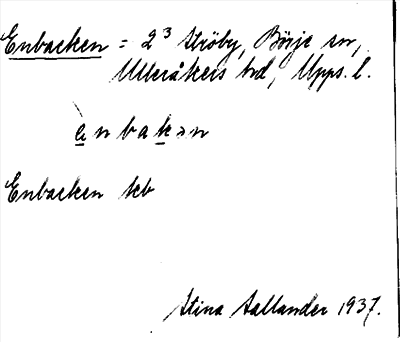 Enbacken = 2³ Ströby, Börje sn,
Ulleråkers hd, Upps. l.
enbakən
Enbacken kb
Stina Sallander 1937.